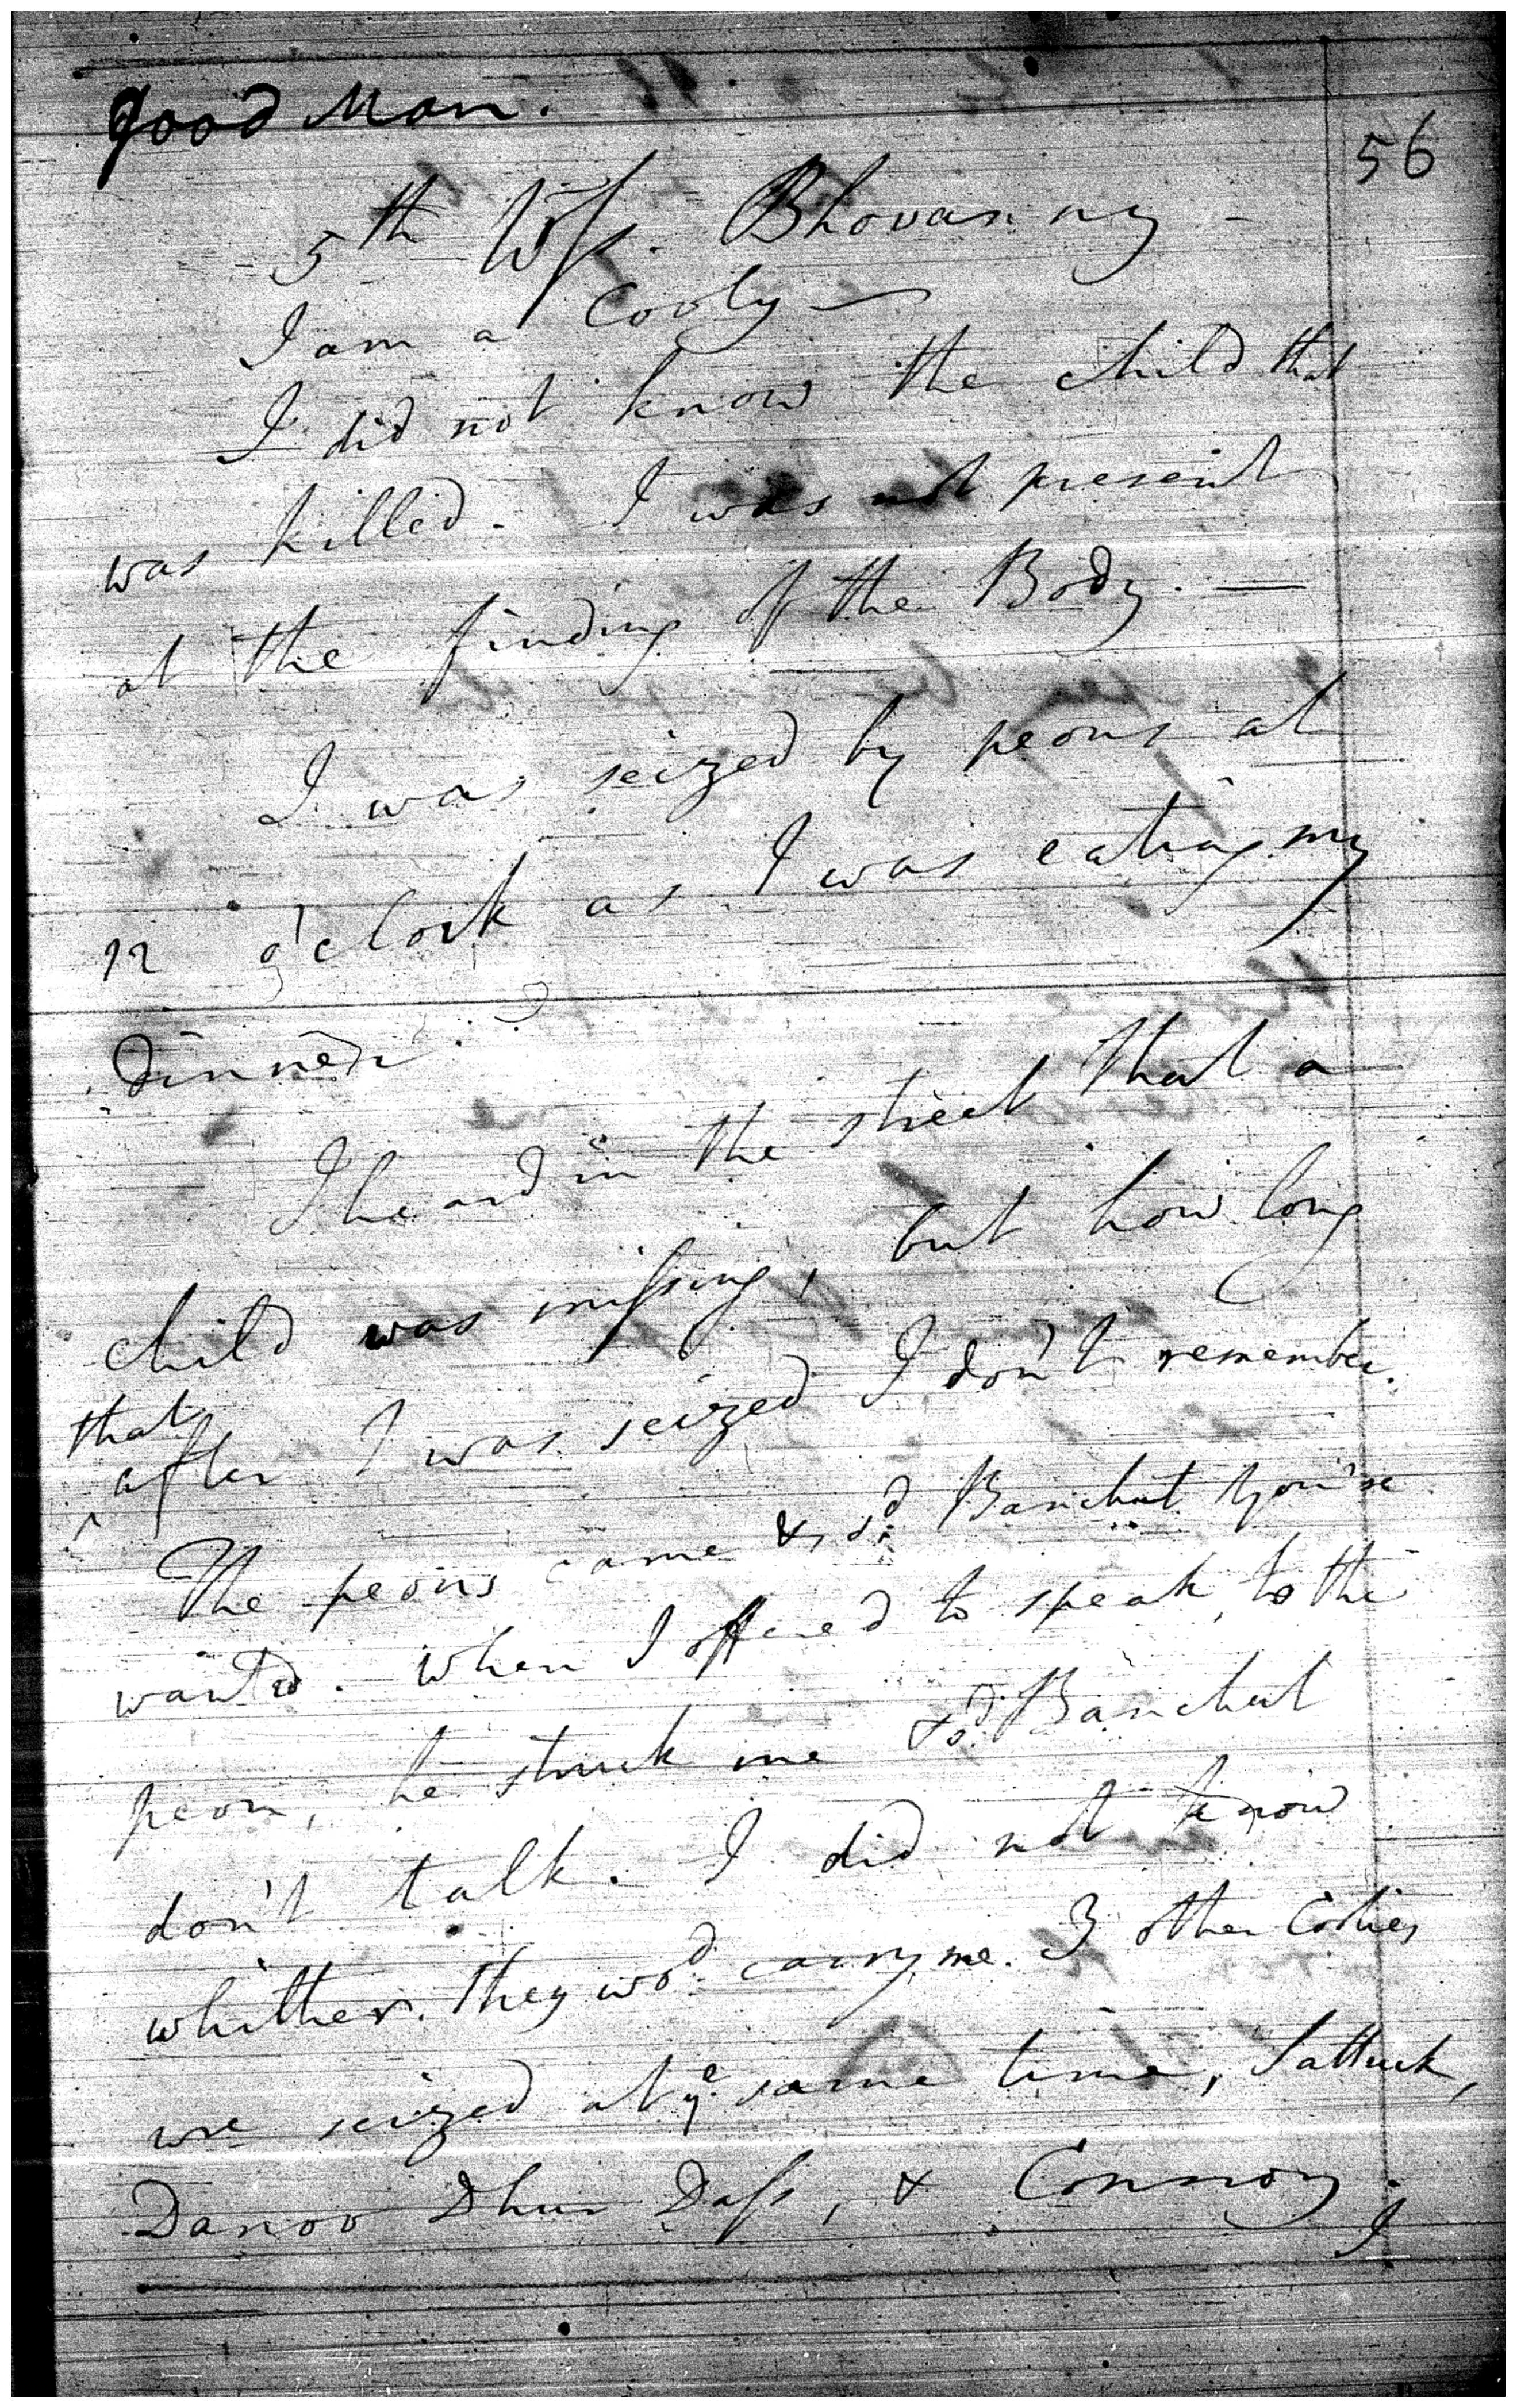 good Man.
56
5th Wss. Bhovanny -
I am a Cooly —
I did not know the child that
was killed. I was not present
at the finding of the Body. —
I was seized by peons at
12 o'clock as I was eating my
dinner.
I heard in the street that a
child was missing, but how long
that
after I was seized I don't remember.
^
The peons came & sd. Banchut you're
wanted. When I offered to speak to the
peon, he struck me & sd. Banchut
don't talk. I did not know
whither they wod. carry me. 3 other Coolies
wre seized at ye same time, Sattuck,
Danoo Dhur Dass, & Connoy.
I